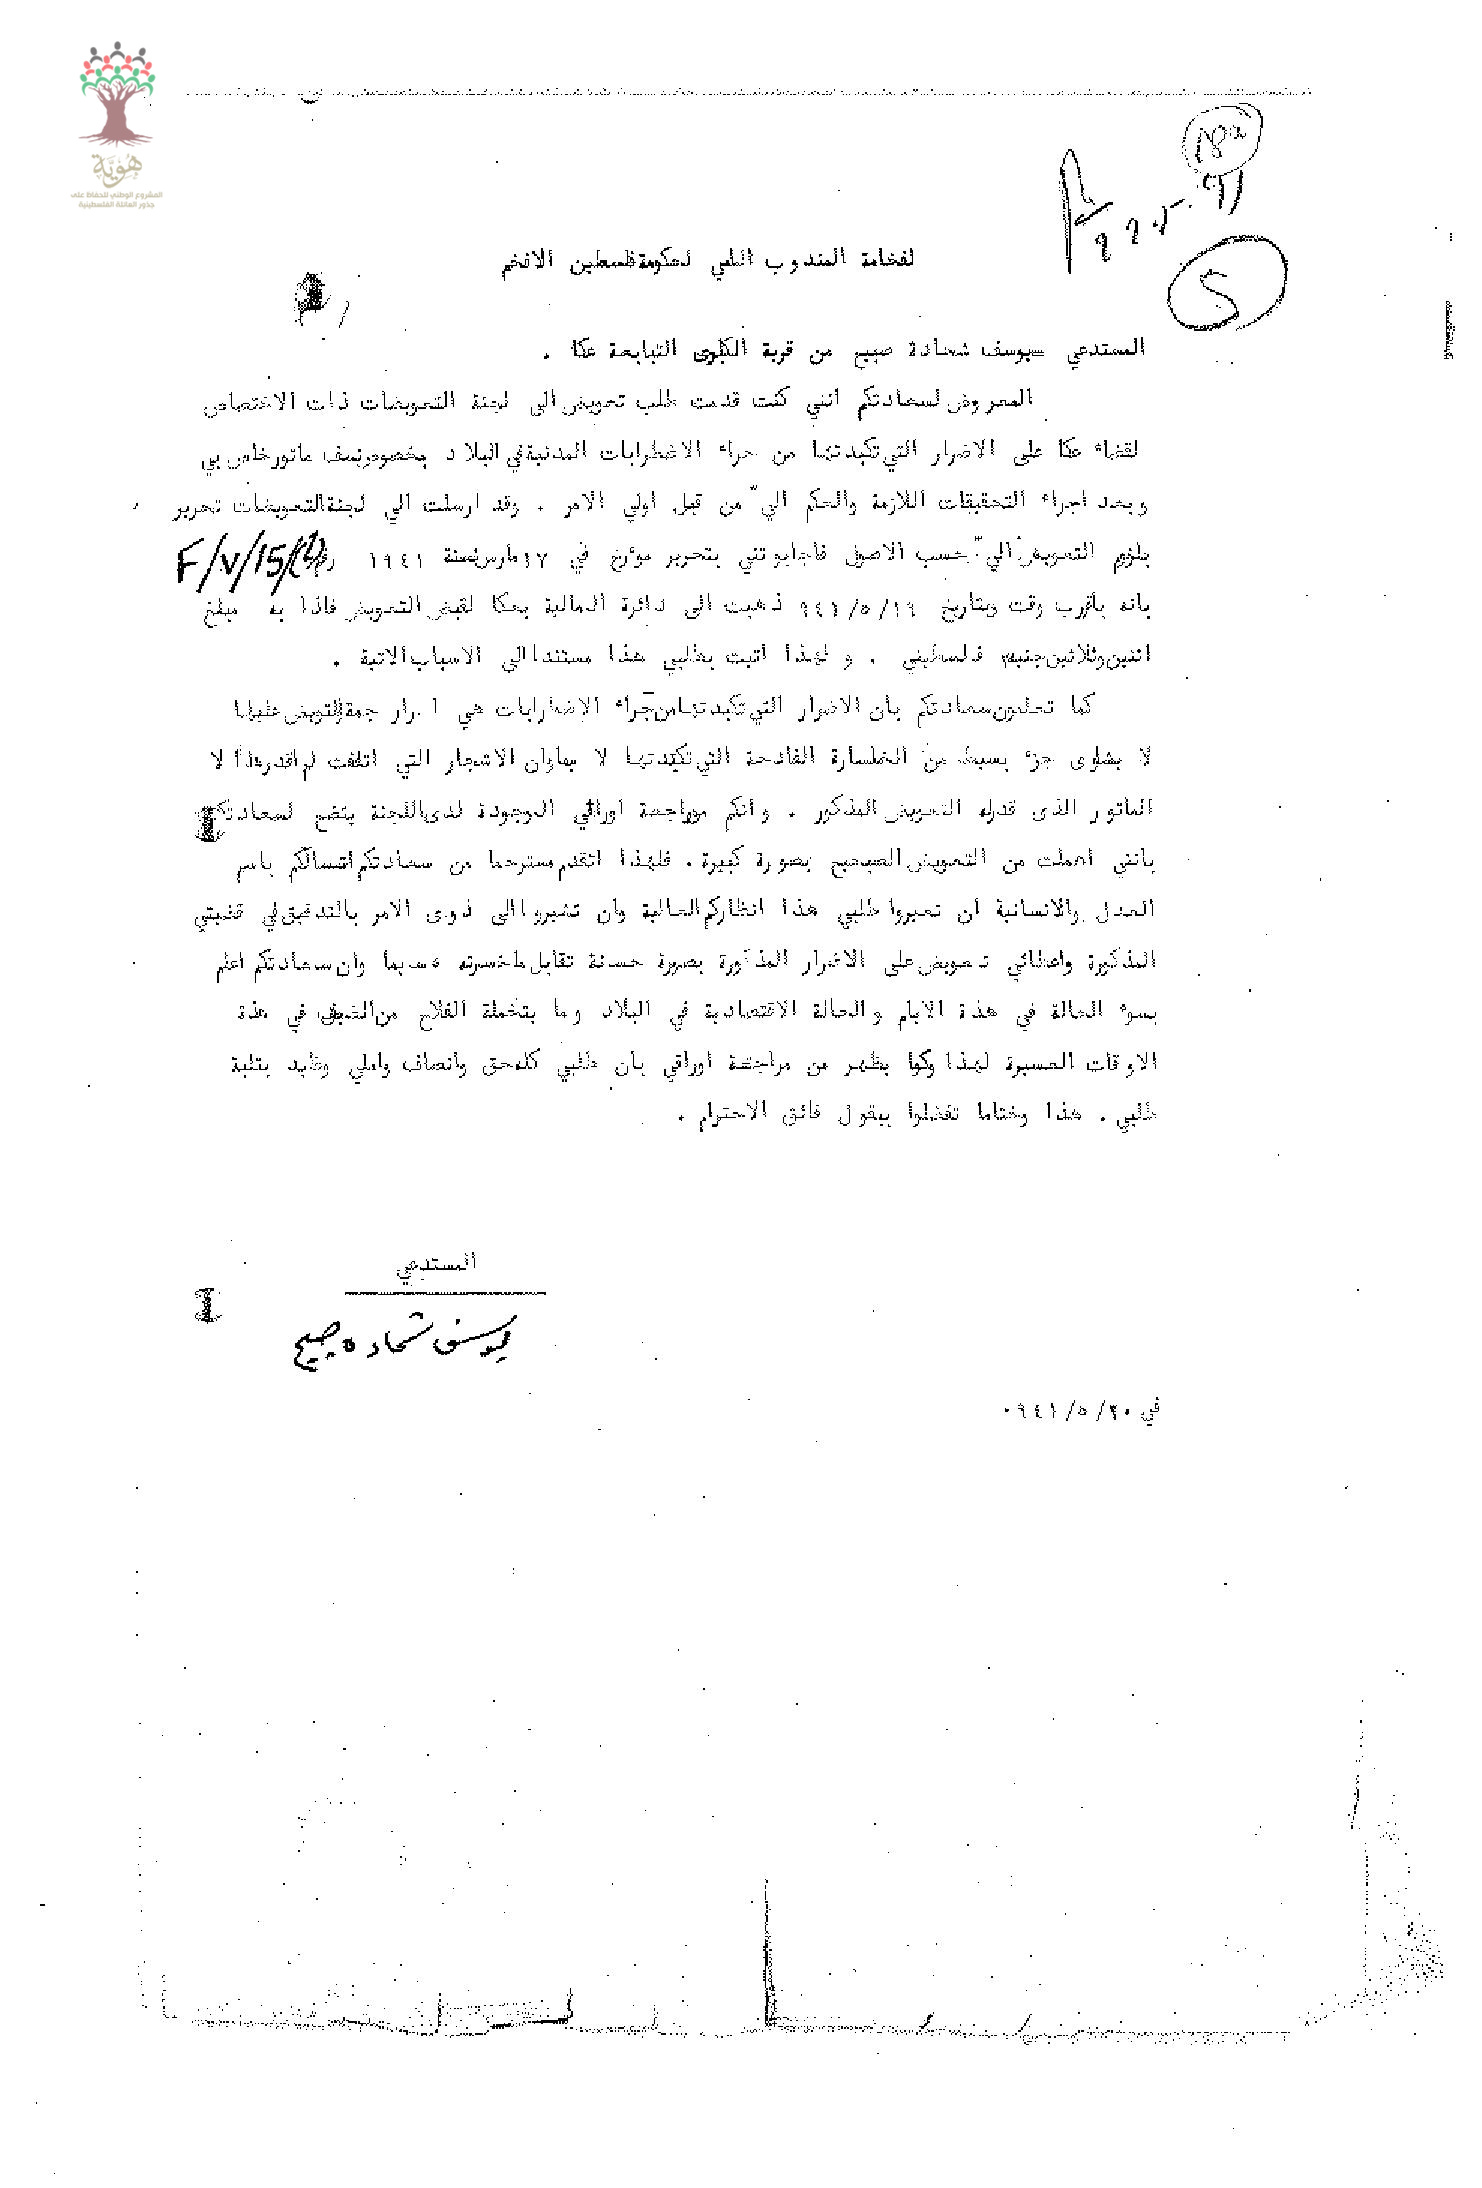 هوية
المشروع الوطني للحفاظ على
جذور العائلة الفلسطينية
5
لفخامة المندوب السامي لحكومة فلسطين الافخم
المستدعي يوسف شحادة صبيح من قرية التابعة عكا .
المعروض لسعادتكم انني كنت قدمت طلب تعويض الى لجنة التعويضات ذات الاختصاص
لقضاء عكا على الاضرار التي تكبدتها من جراء الاضطرابات المدنية في البلاد بخصوص نسف ماتور خاص بي
وبعد اجراء التحقيقات اللازمة والحكم الي من قبل اولي الامر . وقد ارسلت الي لجنة التعويضات تحرير
بلزوم التعويض الي حسب الاصول فاجابوتني بتحرير مؤرخ في ١٧ مارس سنة ١٩٤١ رقم F/V/15/
بانه باقرب وقت وبتاريخ ١٩/٥/٩٤١ ذهبت الى دائرة المالية بعكا لقبض التعويض فاذا به مبلغ
اثنين وثلاثين جنيه فلسطيني . ولهذا اتيت بطلبي هذا مستندا الى الاسباب الاتية .
كما تعلمون سعادتكم بان الاضرار التي تكبدتها من جراء الاضطرابات هي
لا يساوي جزء بسيط من الخسارة الفادحة التي تكبدتها لا سيما وان الاشجار التي اتلفت لم
الماتور الذى قدرله التعويض المذكور . وانكم اوراقي الموجودة لدى اللجنة يتضح لسعادتكم
بانني اهملت من التعويض الصحيح بصورة كبيرة . فلهذا اتقدم مسترحما من سعادتكم باسم
العدل والانسانية ان تعيروا طلبي هذا انظاركم العالية وان تشيروا الى ذوى الامر بالتدقيق في قضيتي
المذكورة واعطائي تعويض على الاضرار المذكورة بصورة حسنة تقابل ماخسرته سيما وان سعادتكم اعلم
بسوء الحالة في هذة الايام والحالة الاقتصادية في البلاد وما يتحملة الفلاح من الضيق في هذة
الاوقات العسيرة لهذا وكما يظهر من مراجعة اوراقي بان طلبي كله حق وانصاف واملي بتلبية
طلبي . هذا وختاما تفضلوا بقبول فائق الاحترام .
المستدعي
يوسف شحاده صبيح
في ٢٠/٥/٩٤١.